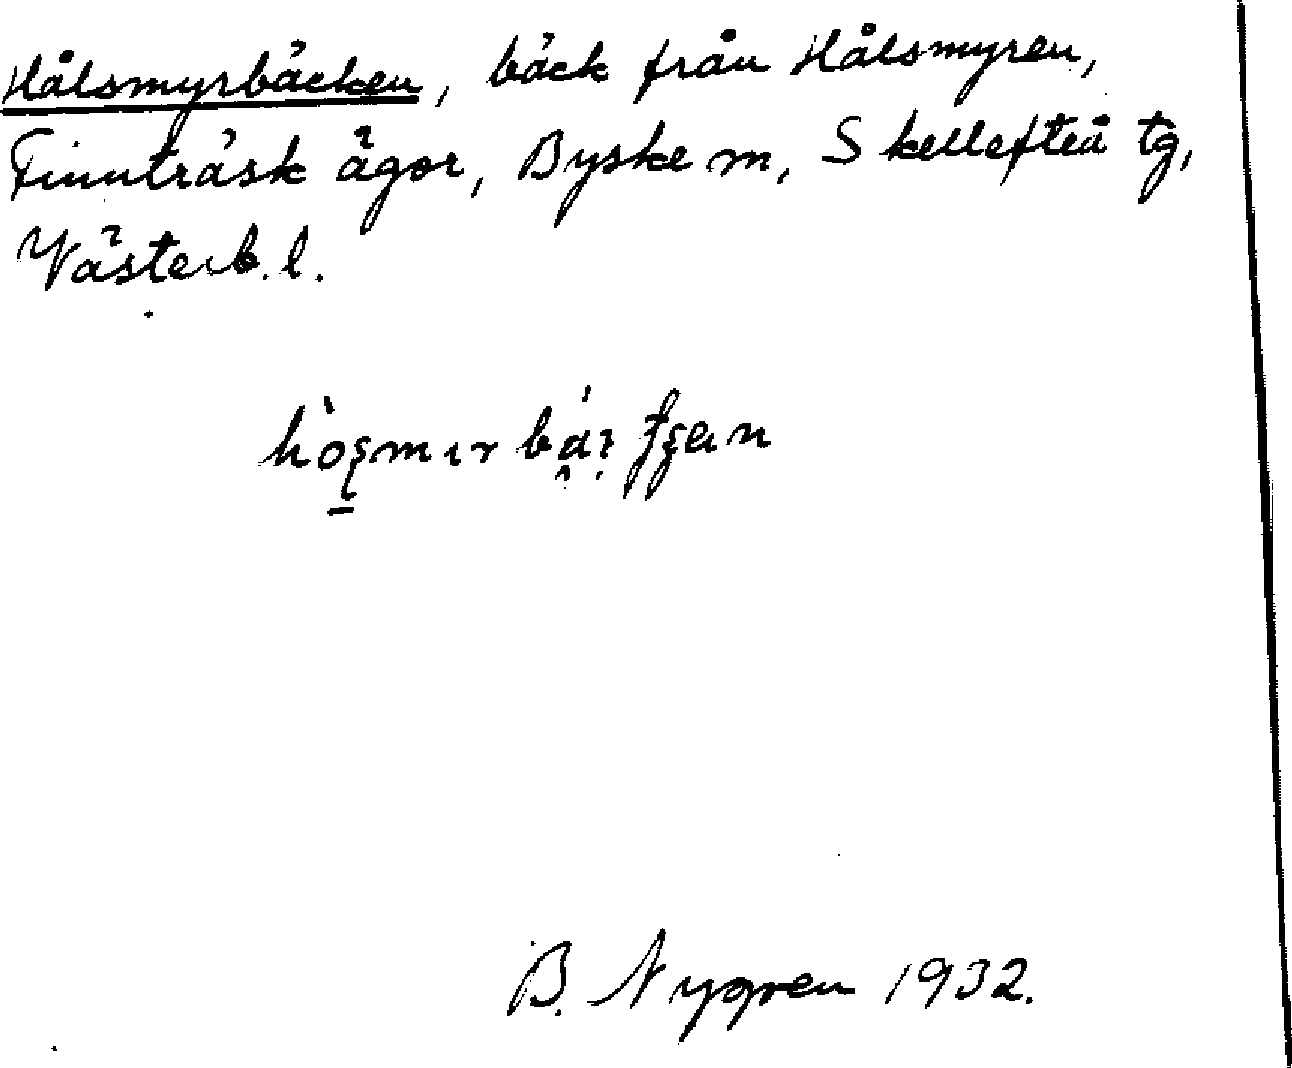 Hålsmyrbäcken, bäck från Hålsmyren,
Finnträsk ägor, Byske m, Skellefteå tg,
Västerb. l.
B. Nygren 1932.